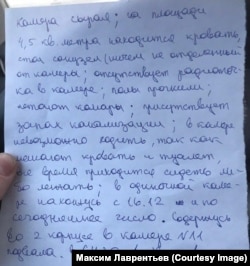 камера сырая; на площади
4,5 кв метра находится кровать,
стол санузел (ничем не отделенный
от камеры; отсутствует радиоточ-
ка в камере; полы прогнили;
летают комары; присутствует
запах канализации; в камере
невозможно ходить, так как
мешают кровать и туалет,
все время приходится сидеть ли-
бо лежать; в одиночной каме-
ре нахожусь с 16.12 и по
сегодняшнее число. Содержусь
во 2 корпусе в камере №11
подвала.
Максим Лаврентьев (Courtesy Image)